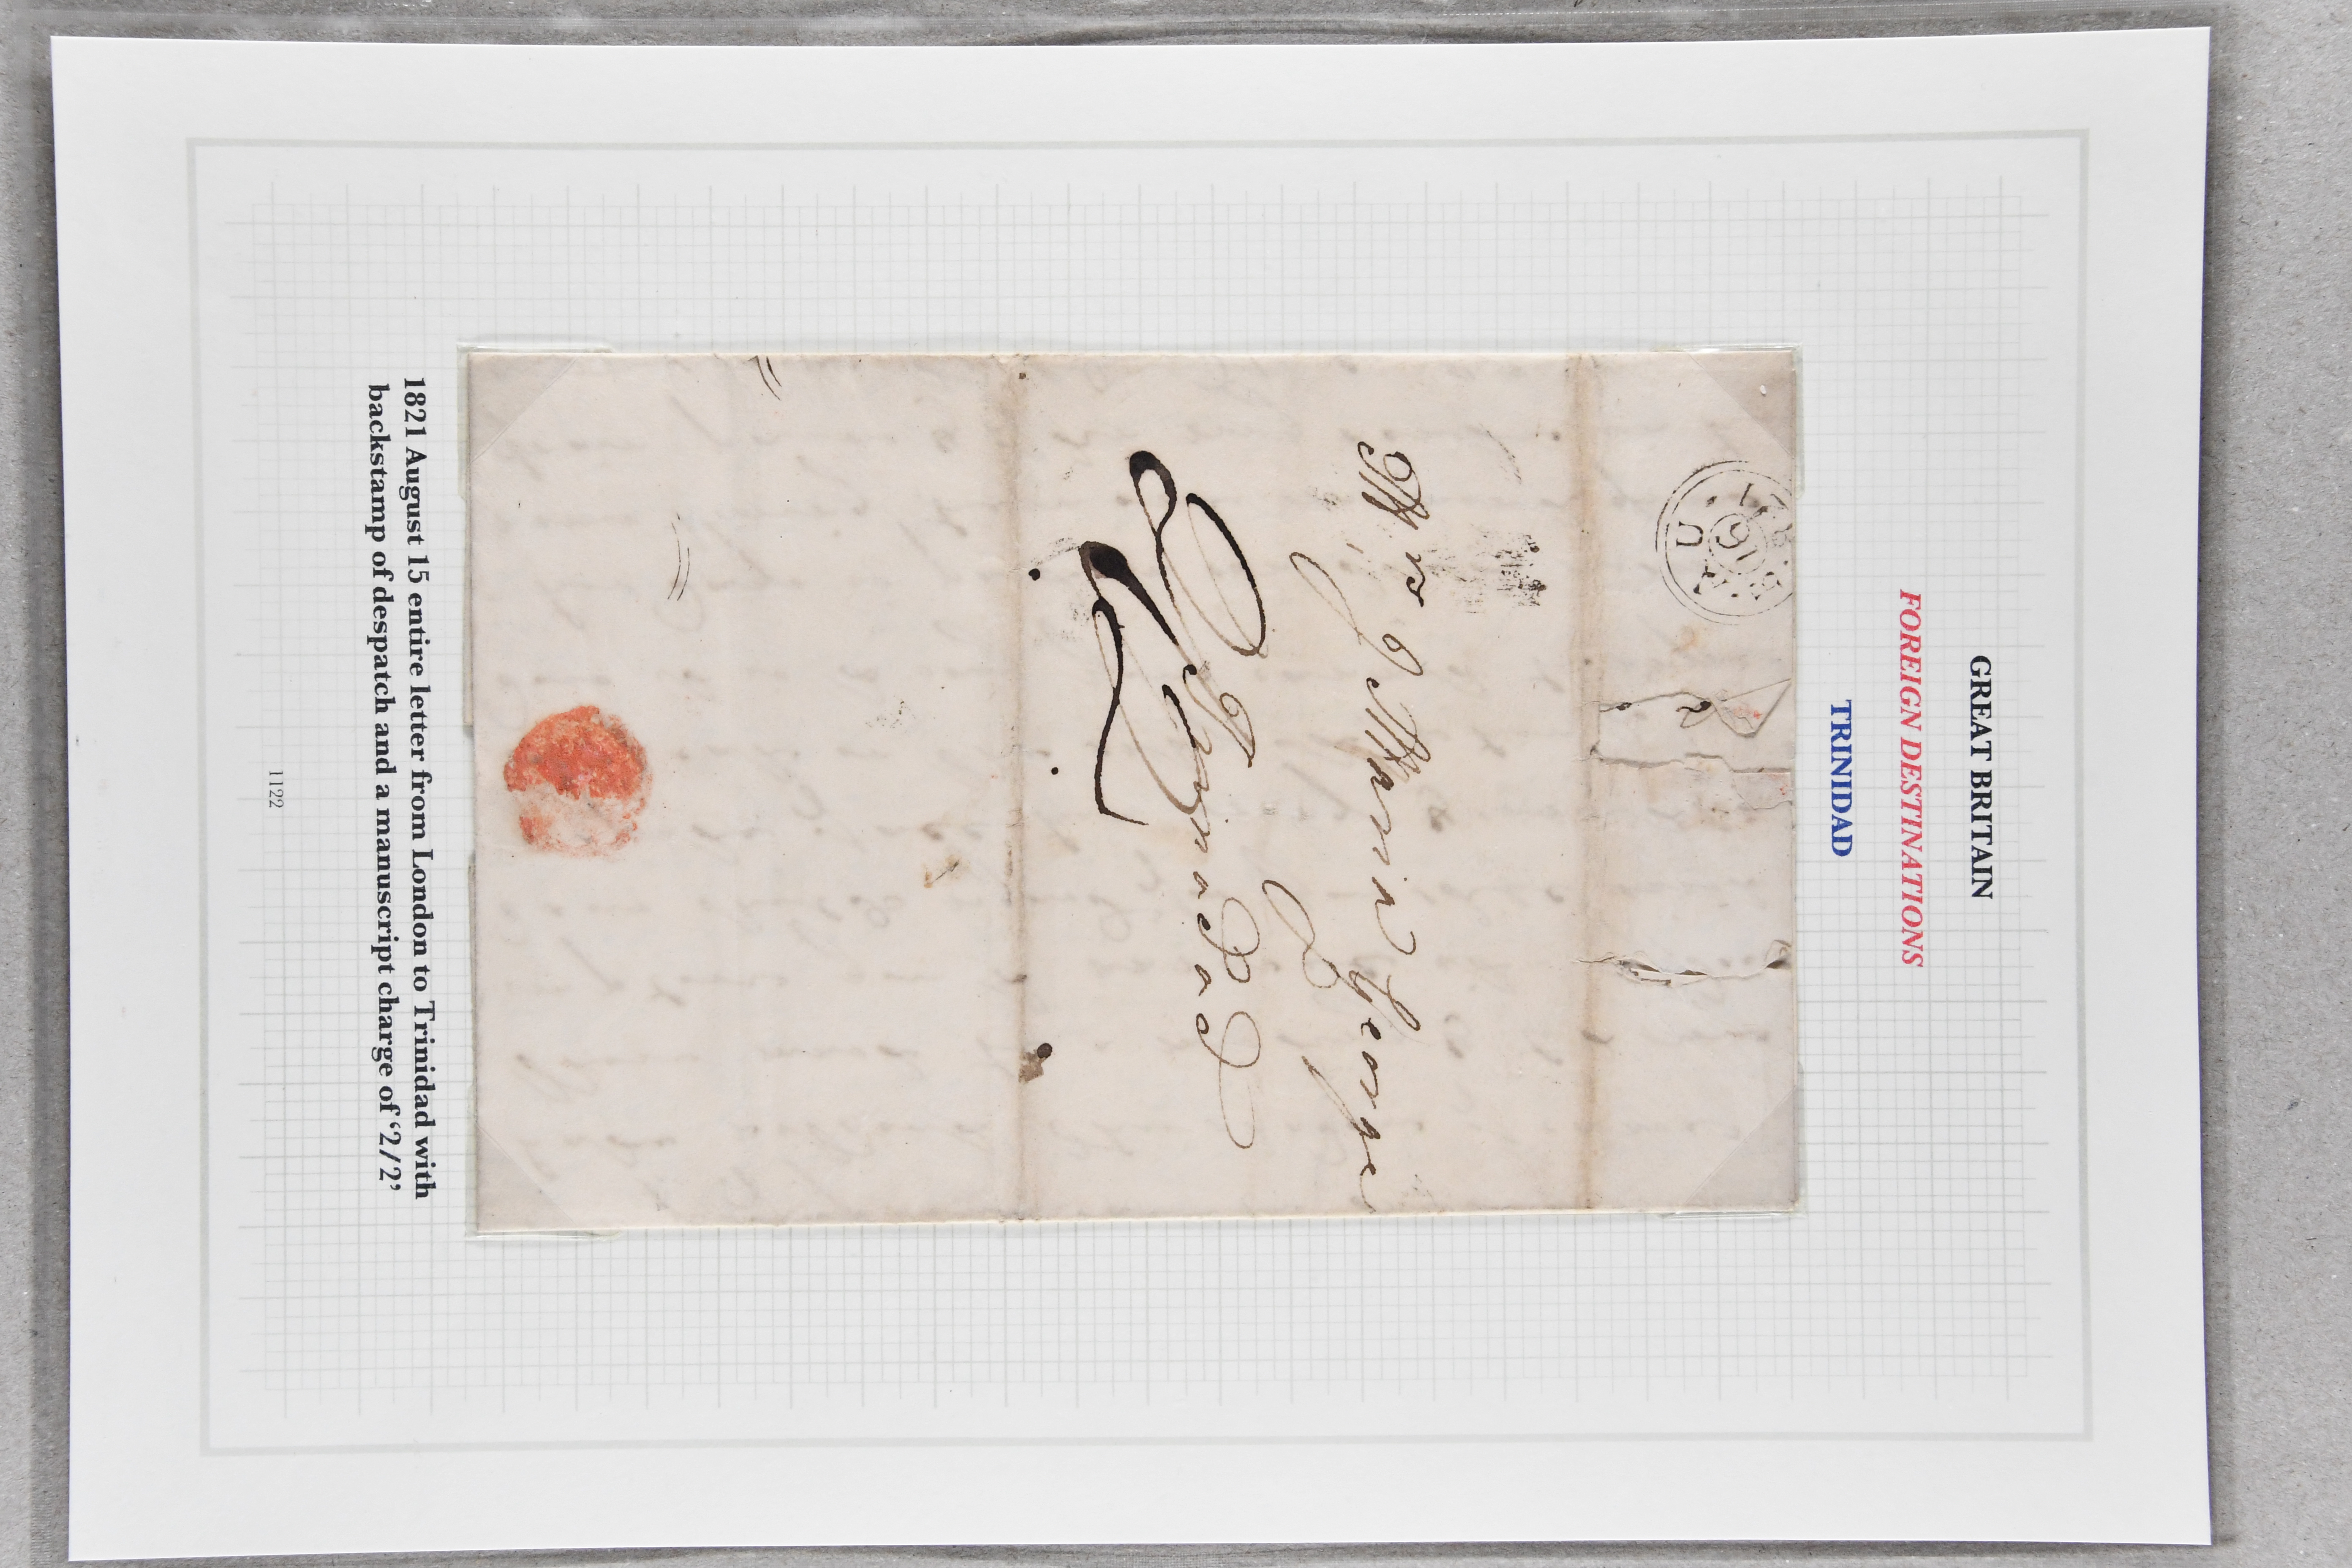 GREAT BRITAIN
FOREIGN DESTINATIONS
TRINIDAD
AU
16
1821
Mrs J Maria George
Trinidad
2/2
1821 August 15 entire letter from London to Trinidad with
backstamp of despatch and a manuscript charge of ‘2/2’
1122